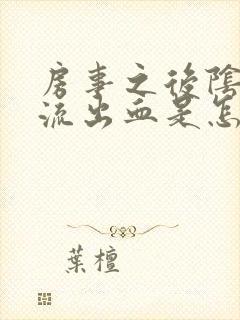 房事之後陰
流出血是怎
葉檀